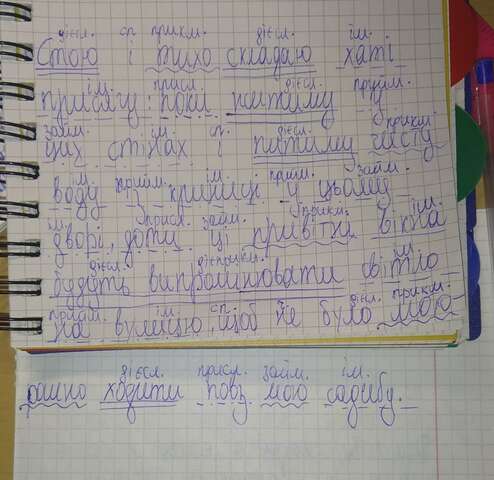 дієсл. сп прикм. дієсл. ім.
Стою і тихо складаю хаті
ім. присл. дієсл. прийм.
присягу: поки житиму у
займ. ім. сп. дієсл. прикм.
цих стінах і питиму чисту
ім. прийм. ім. прийм. займ.
воду з криниці у цьому
ім. присл. займ. прикм. ім.
дворі, доти ці привітні вікна
дієсл. дієприкм. ім.
будуть випромінювати світло
прийм. ім. сп. дієсл. прикм.
на вулицю, щоб не було
дієсл. присл. займ. ім.
ходити повз мою садибу.